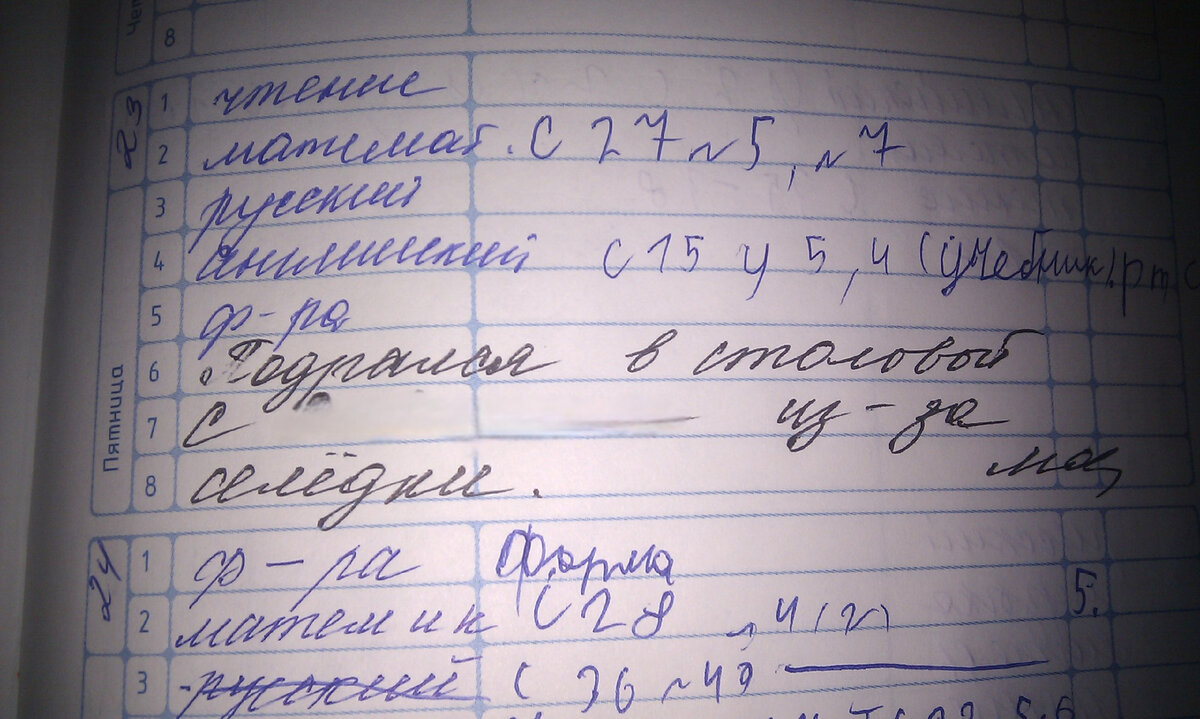 8
23
1 чтение
2 математ. С 27 № 5, № 7
3 русский
4 Английский с 15 у 5, 4 (учебник) рт с
5 ф-ра
Пятница
6 Подрался в столовой
7 С из-за
8 селёдки.
24
1 ф-ра форма
2 матем и к С 28 № 4 (2) 5.
3 русский с 36 № 49